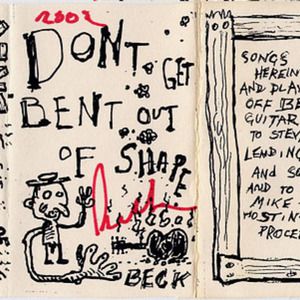 2002
DON'T
GET
BENT OUT
OF SHAPE
BECK
SONGS
HEREIN
AND PLAY
OFF BE
GUITAR
TO STEV
LENDING
AND SU
AND TO
MIKE
HOSTING
PROCEE